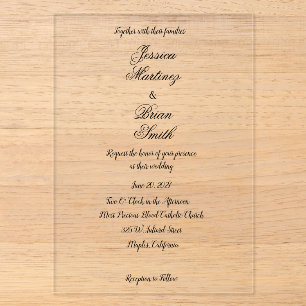 Together with their families
Jessica
Martinez
&
Brian
Smith
Request the honor of your presence
at their wedding
June 20, 2021
Two O' Clock in the Afternoon
Most Precious Blood Catholic Church
525 W. Inland Street
Maples, California
Reception to Follow